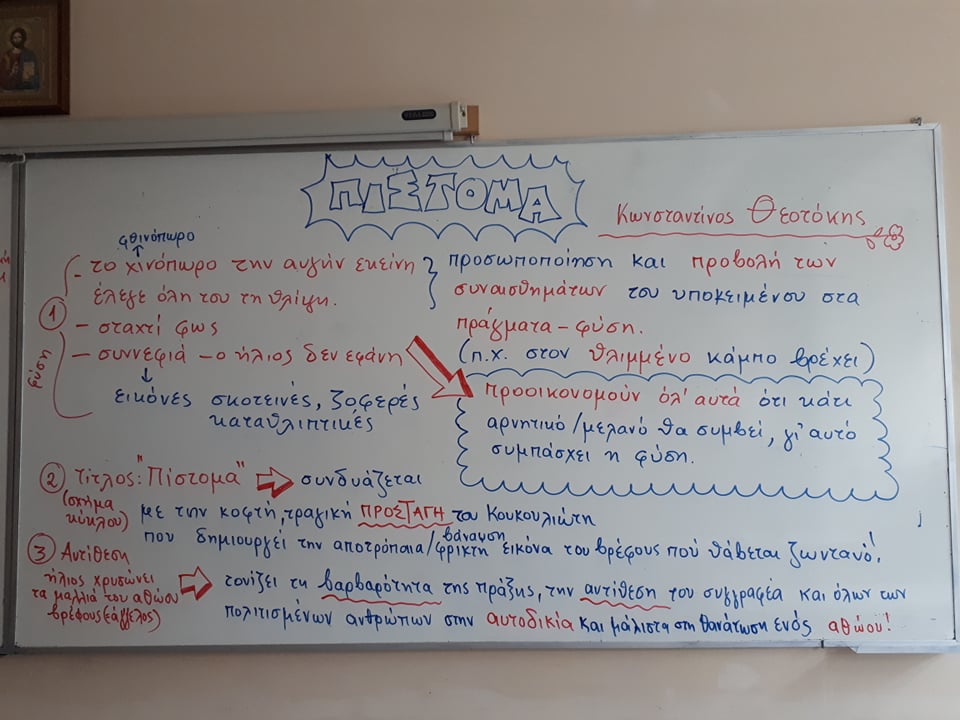 ΠΙΣΤΟΜΑ
Κωνσταντίνος Θεοτόκης
φθινόπωρο
1
φύση
- το χινόπωρο την αυγήν εκείνη
έλεγε όλη του τη θλίψη.
- σταχτί φως
- συννεφιά - ο ήλιος δεν εφάνη
εικόνες σκοτεινές, ζοφερές
καταθλιπτικές
προσωποποίηση και προβολή των
συναισθημάτων του υποκειμένου στα
πράγματα - φύση.
(π.χ. στον θλιμμένο κάμπο βρέχει)
προοικονομούν όλ' αυτά ότι κάτι
αρνητικό/μελανό θα συμβεί, γι' αυτό
συμπάσχει η φύση.
2 Τίτλος: "Πίστομα" συνδυάζεται
(σχήμα
κύκλου) με την κοφτή, τραγική ΠΡΟΣΤΑΓΗ του Κουκουλιώτη
βάναυση
που δημιουργεί την αποτρόπαια/φρικτή εικόνα του βρέφους πού θάβεται ζωντανό!
3 Αντίθεση
ήλιος χρυσώνει
τα μαλλιά του αθώου
βρέφους (εάγγελος)
τονίζει τη βαρβαρότητα της πράξης, την αντίθεση του συγγραφέα και όλων των
πολιτισμένων ανθρώπων στην αυτοδικία και μάλιστα στη θανάτωση ενός αθώου!